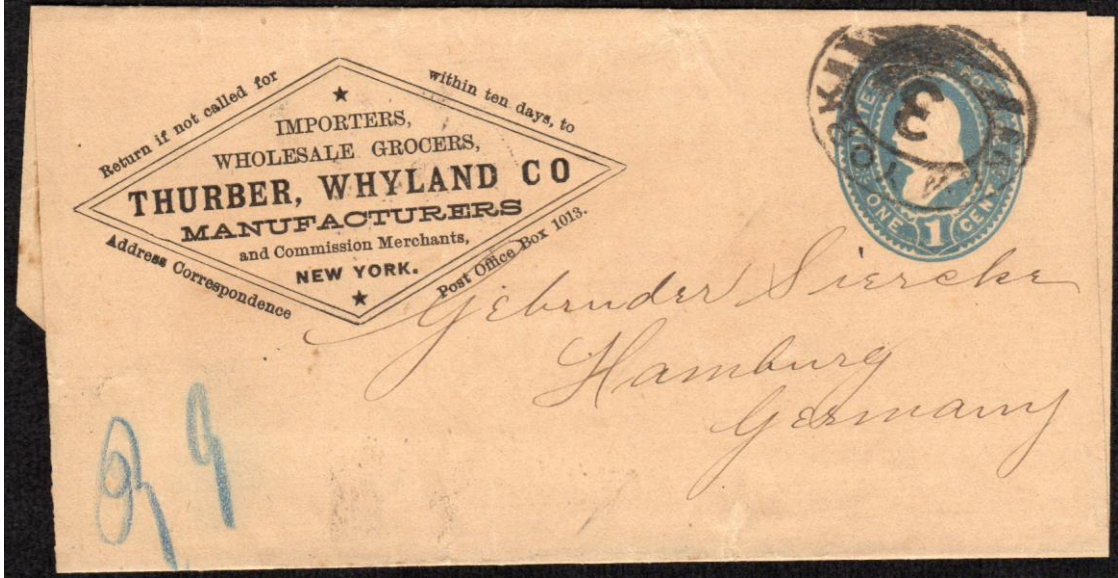 Return if not called for within ten days, to
IMPORTERS,
WHOLESALE GROCERS,
THURBER, WHYLAND CO
MANUFACTURERS
and Commission Merchants,
NEW YORK.
Address Correspondence Post Office Box 1013.
3
ONE 1 CENT
Gebruder Siercke
Hamburg
Germany